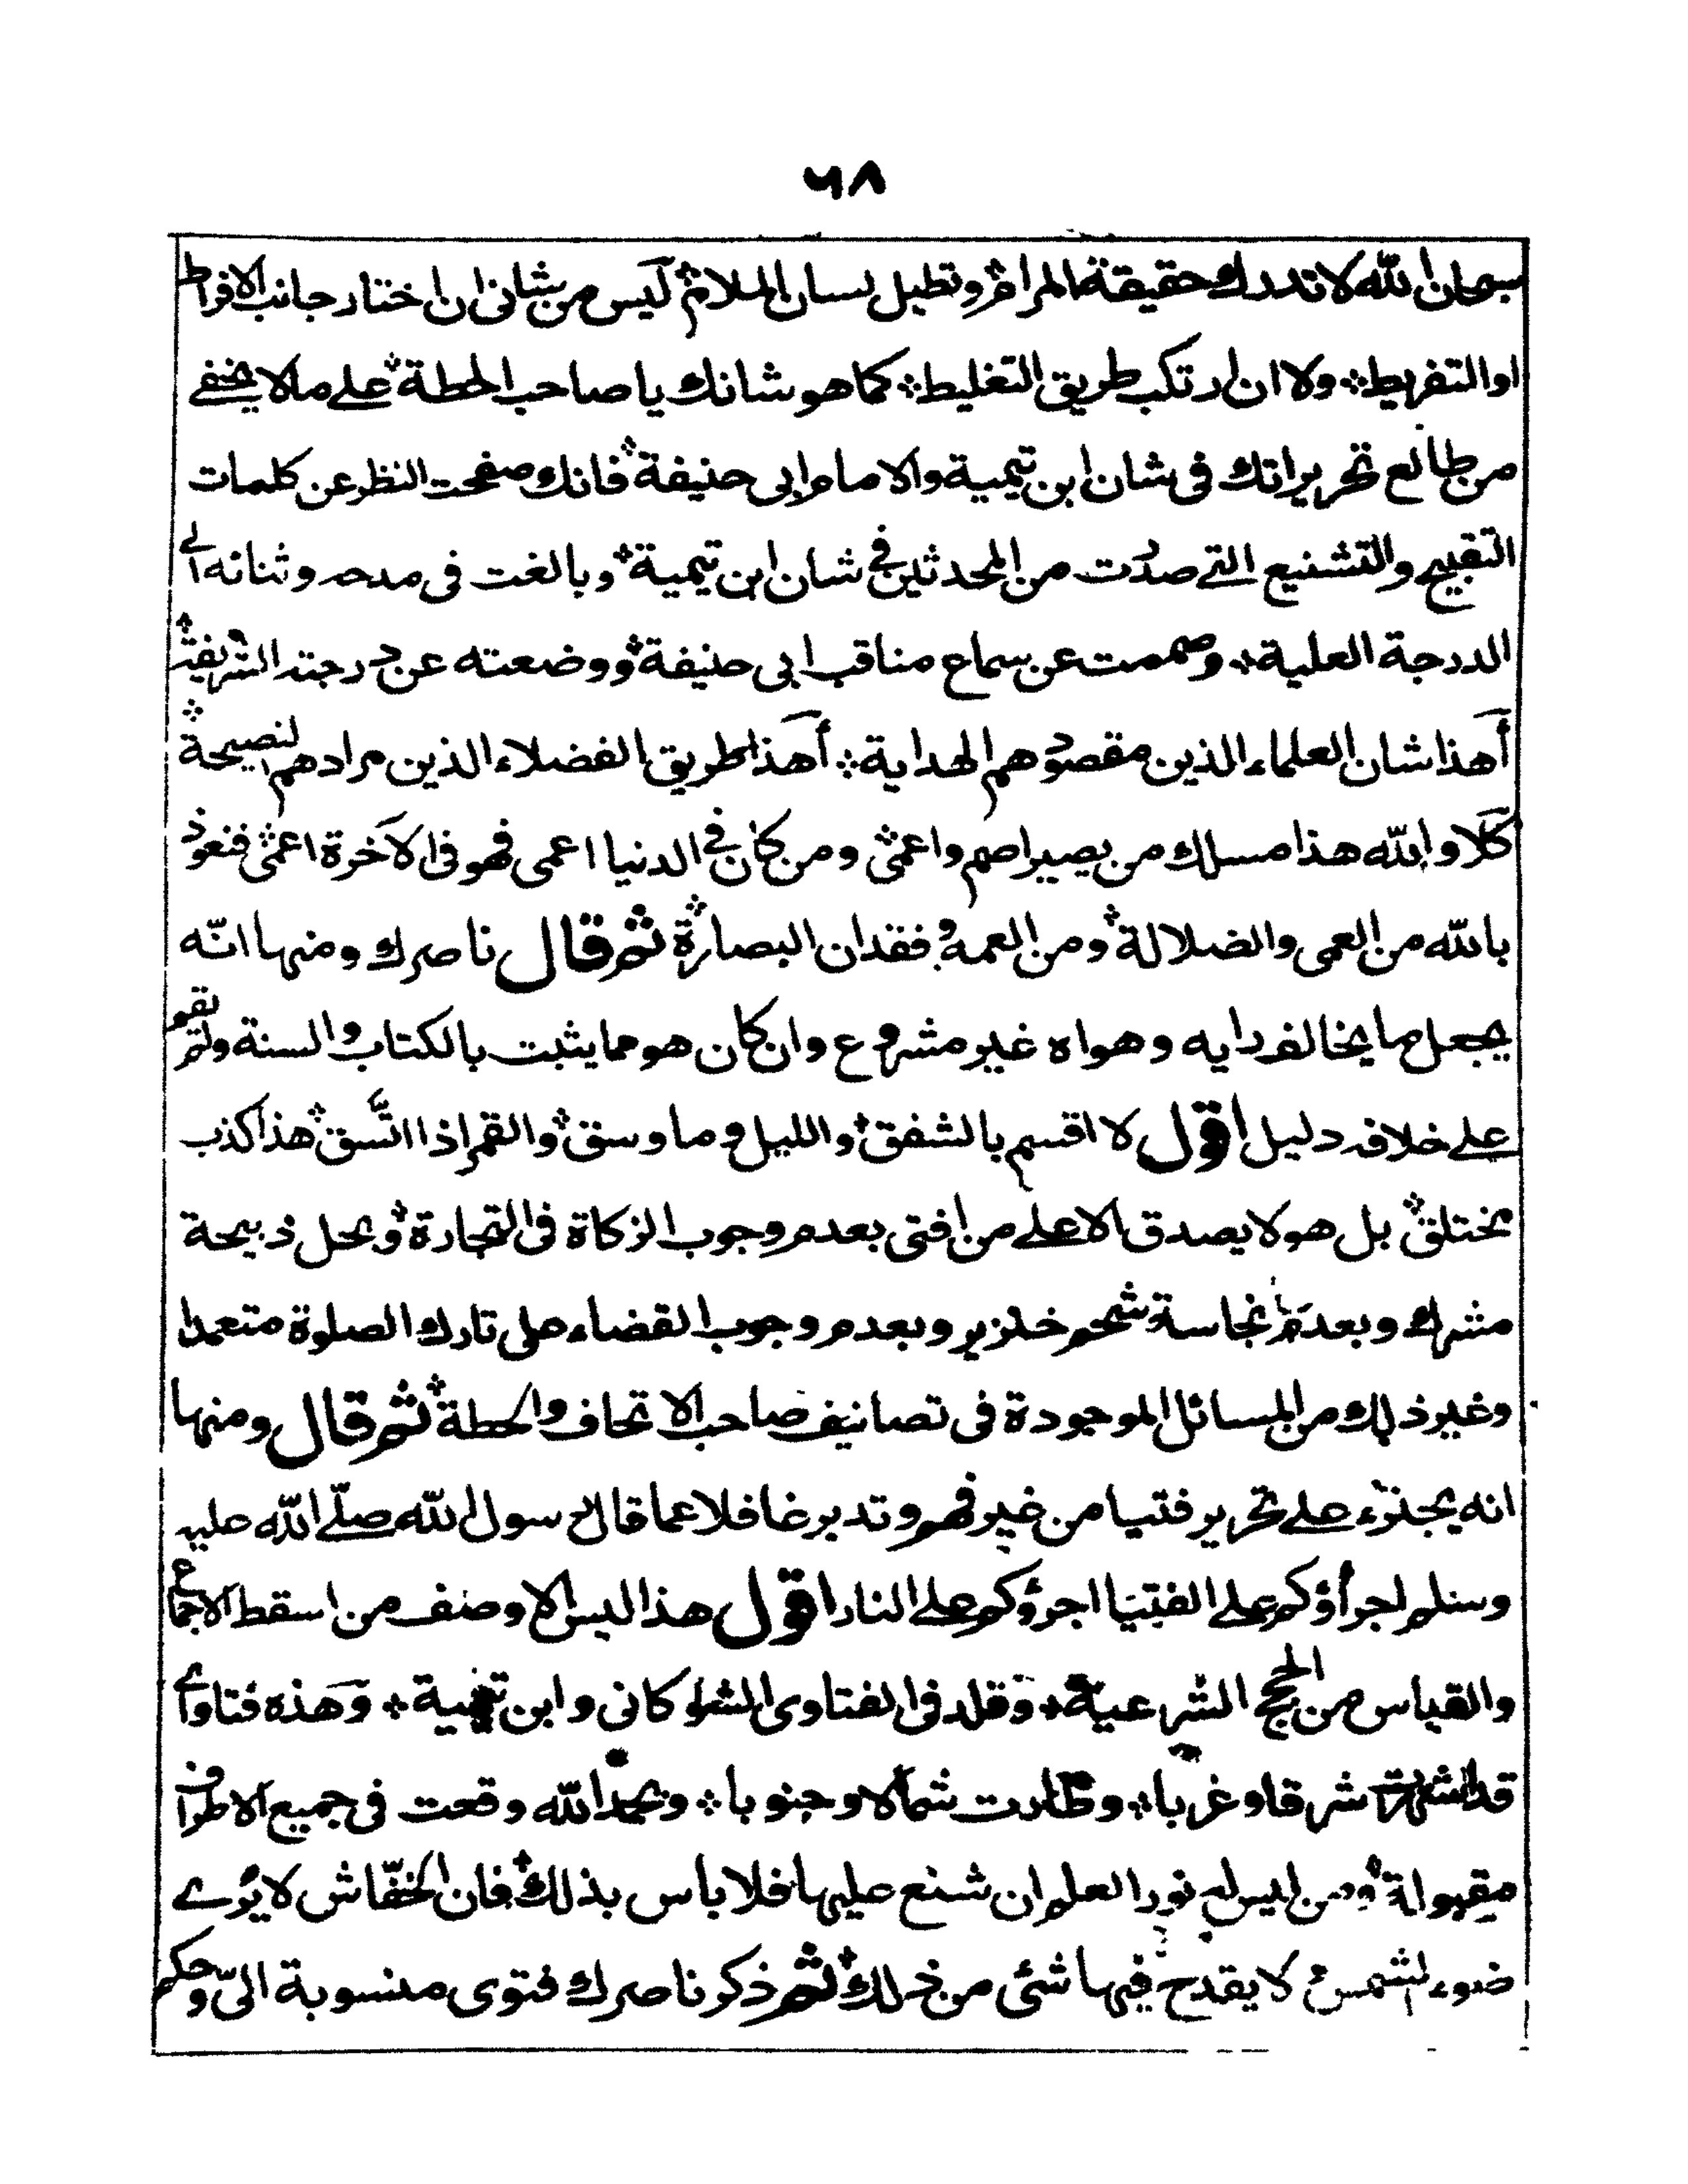 ٦٨
سبحان الله لا تدرك حقيقة المرام؞ وتطيل لسان الملام؞ ليس من شانى ان اختار جانب الافراط
او التفريط؞ ولا ان ارتكب طريق التغليط؞ كما هو شانك يا صاحب الحطة؞ على ما لا يخفى
من طالع تحريراتك فى شان ابن تيمية والامام ابى حنيفة؞ فانك صفحت النظر عن كلمات
التقبيح والتشنيع التى صدرت من المحدثين فى شان ابن تيمية؞ وبالغت فى مدحه وثنائه الى
الدرجة العلية؞ وصممت عن سماع مناقب ابى حنيفة؞ ووضعته عن درجته الشريفة؞
أهذا شان العلماء الذين مقصودهم الهداية؞ أهذا طريق الفضلاء الذين مرادهم النصيحة؞
كلا والله هذا مسلك من يصير اصم واعمى؞ ومن كان فى الدنيا اعمى فهو فى الآخرة اعمى؞ فنعوذ
بالله من العمى والضلالة؞ ومن العمه وفقدان البصارة؞ ثم قال ناصرك ومنها انّه
يجعل ما يخالف رايه وهواه غير مشروع وان كان هو مما يثبت بالكتاب والسنة ولم يقم
على خلافه دليل اقول لا اقسم بالشفق؞ والليل وما وسق؞ والقمر اذا اتّسق؞ هذا كذب
مختلق؞ بل هو لا يصدق الا على من افتى بعدم وجوب الزكاة فى التجارة؞ وبحل ذبيحة
مشرك وبعدم نجاسة شحم خنزير وبعدم وجوب القضاء على تارك الصلوة متعمدا
وغير ذلك من المسائل الموجودة فى تصانيف صاحب الاتحاف والحطة؞ ثم قال ومنها
انه يجترء على تحرير فتيا من غير فهم وتدبر غافلا عما قال رسول الله صلّى الله عليه
وسلم اجرأؤكم على الفتيا اجرؤكم على النار اقول هذا ليس الا وصف من اسقط الاجماع
والقياس من الحجج الشرعية؞ وقلد فى الفتاوى الشوكانى وابن تيمية؞ وهذه فتاواى
قد اشتهرت شرقا وغربا؞ وطارت شمالا وجنوبا؞ وبحمد الله وقعت فى جميع الاطراف
مقبولة؞ ومن ليس له نور العلم ان شنع عليها فلا باس بذلك؞ فان الخفّاش لا يرى
ضوء الشمس؞ لا يقدح فيها شئى من ذلك؞ ثم ذكر ناصرك فتوى منسوبة الىّ وحكم